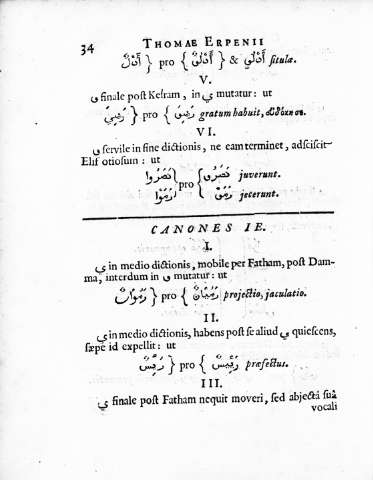 34 THOMAE ERPENII
pro & ſitulæ.
V.
finale poſt Keſram, in ي mutatur: ut
pro gratum habuit,
VI.
ſervile in fine dictionis, ne eam terminet, adſciſcit
Elif otioſum: ut
نَصَرُوا pro juverunt.
رَمَوْا jecerunt.
CANONES IE.
I.
ي in medio dictionis, mobile per Fatham, poſt Dam-
ma, interdum in و mutatur: ut
pro projectio, jaculatio.
II.
ي in medio dictionis, habens poſt ſe aliud ي quieſcens,
ſæpe id expellit: ut
pro præfectus.
III.
ي finale poſt Fatham nequit moveri, ſed abjectâ ſuâ
vocali